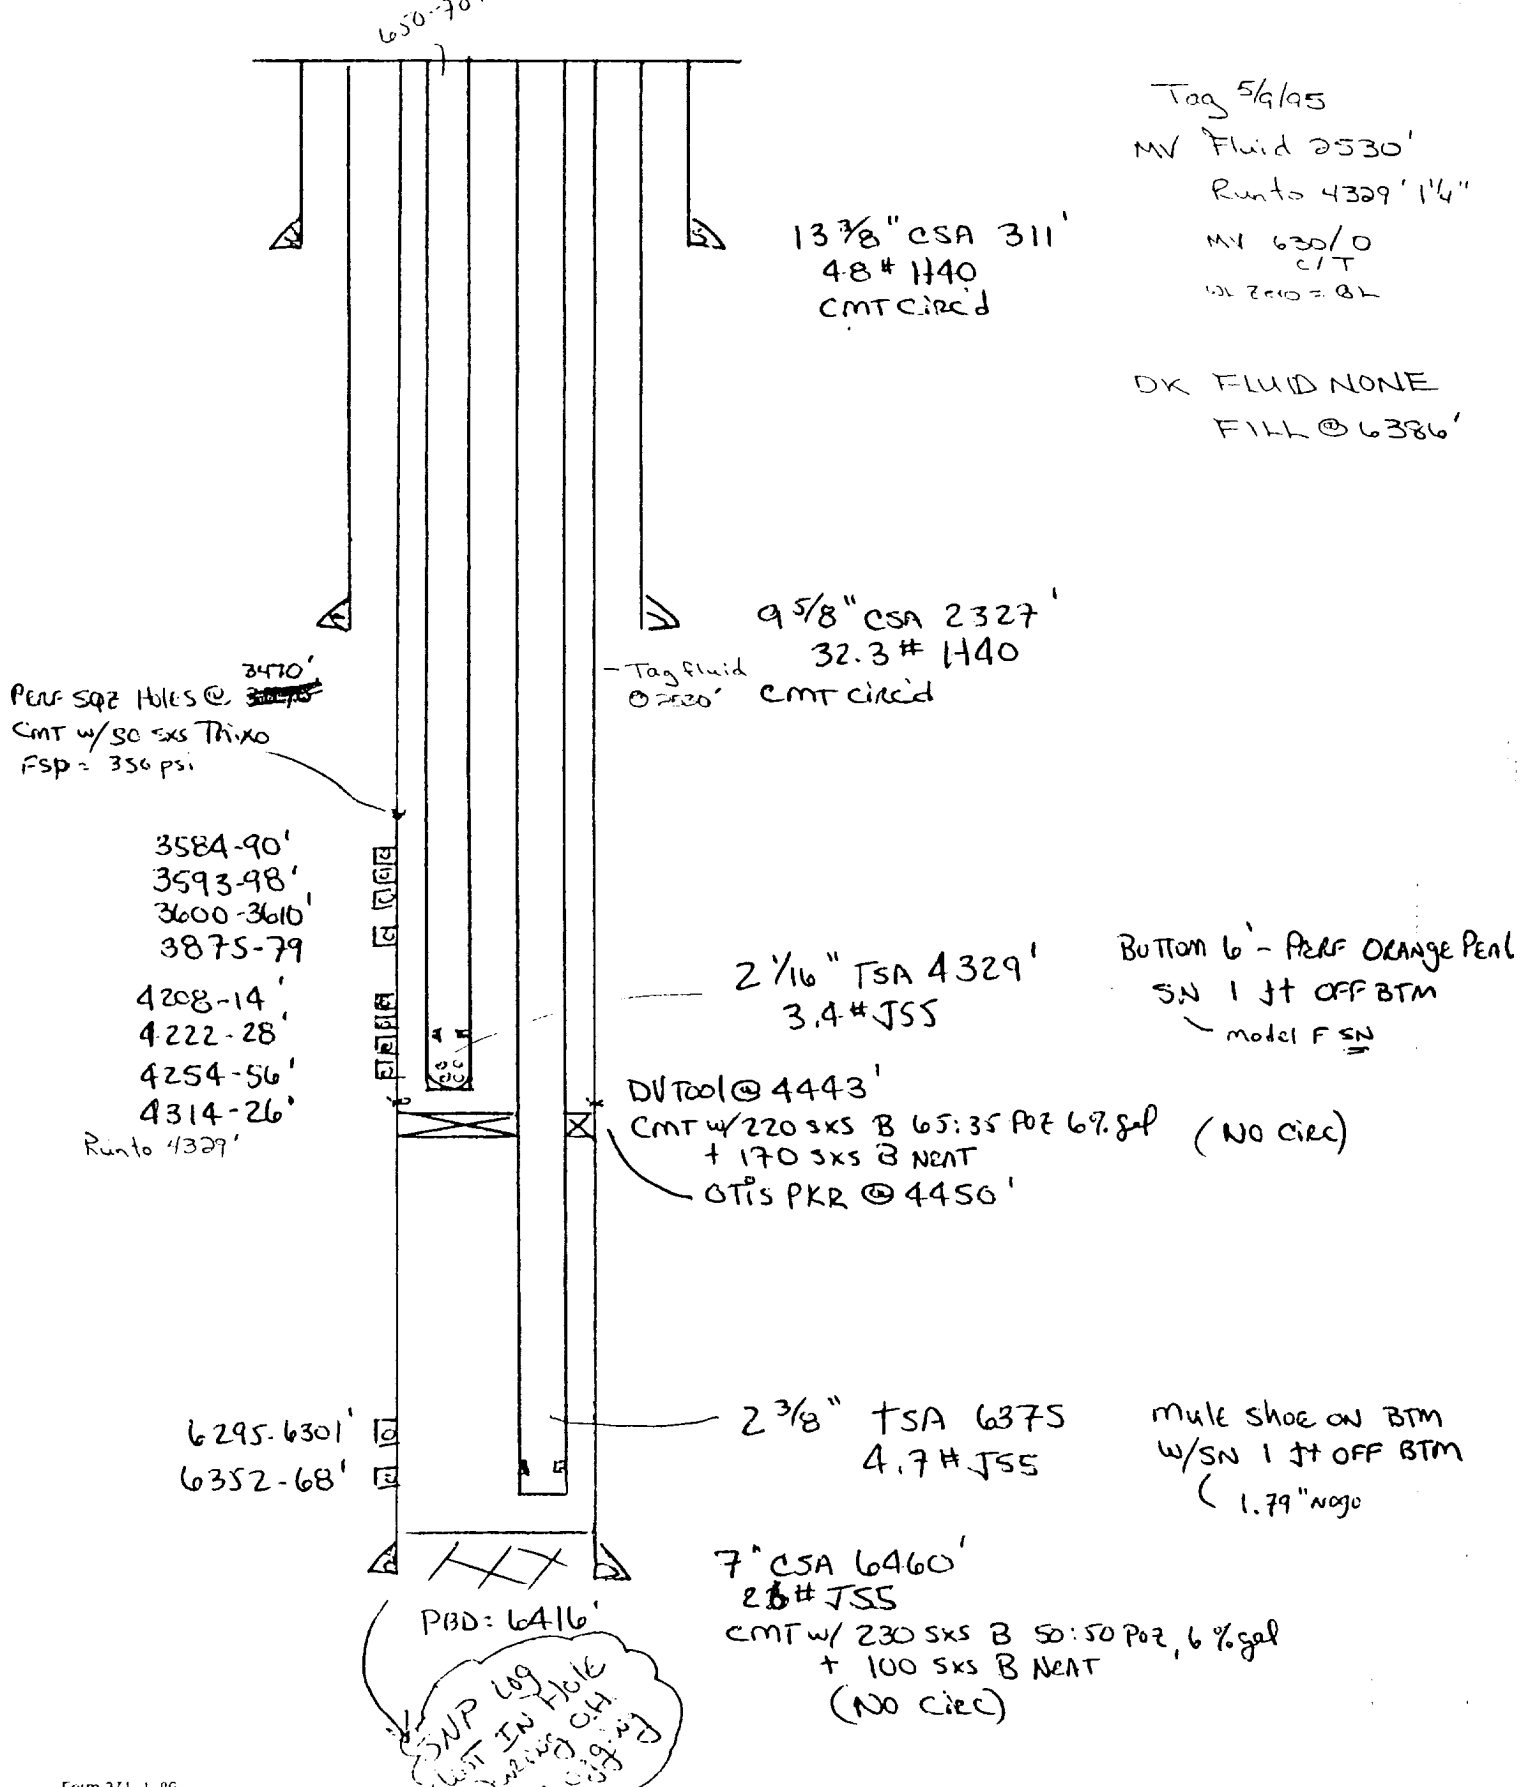 650-70
Tag 5/9/95
MV Fluid 2530'
Run to 4329' 1 1/4"
MV 630/0
C/T
WL Zero = BL
DK FLUID NONE
FILL @ 6386'
13 3/8" CSA 311'
48# H40
CMT CIRC'd
9 5/8" CSA 2327'
32.3# H40
CMT CIRC'd
Tag fluid
@ 2530'
3470'
PERF SQZ Holes @
CMT w/ 50 sxs Thixo
FSP = 356 psi
3584-90'
3593-98'
3600-3610'
3875-79
4208-14'
4222-28'
4254-56'
4314-26'
Run to 4329'
2 1/16" TSA 4329'
3.4# J55
BOTTOM 6' - PERF ORANGE PEAL
SN 1 Jt OFF BTM
model F SN
DV Tool @ 4443'
CMT w/ 220 SXS B 65:35 POZ 6% gel (NO CIRC)
+ 170 SXS B NEAT
OTIS PKR @ 4450'
6295-6301'
6352-68'
2 3/8" TSA 6375
4.7# J55
Mule Shoe ON BTM
W/SN 1 Jt OFF BTM
1.79" nogo
7" CSA 6460'
J55
CMT w/ 230 SXS B 50:50 POZ, 6% gel
+ 100 SXS B NEAT
(NO CIRC)
PBD: 6416'
SNP LOG
LOST IN HOLE
DURING O.H.